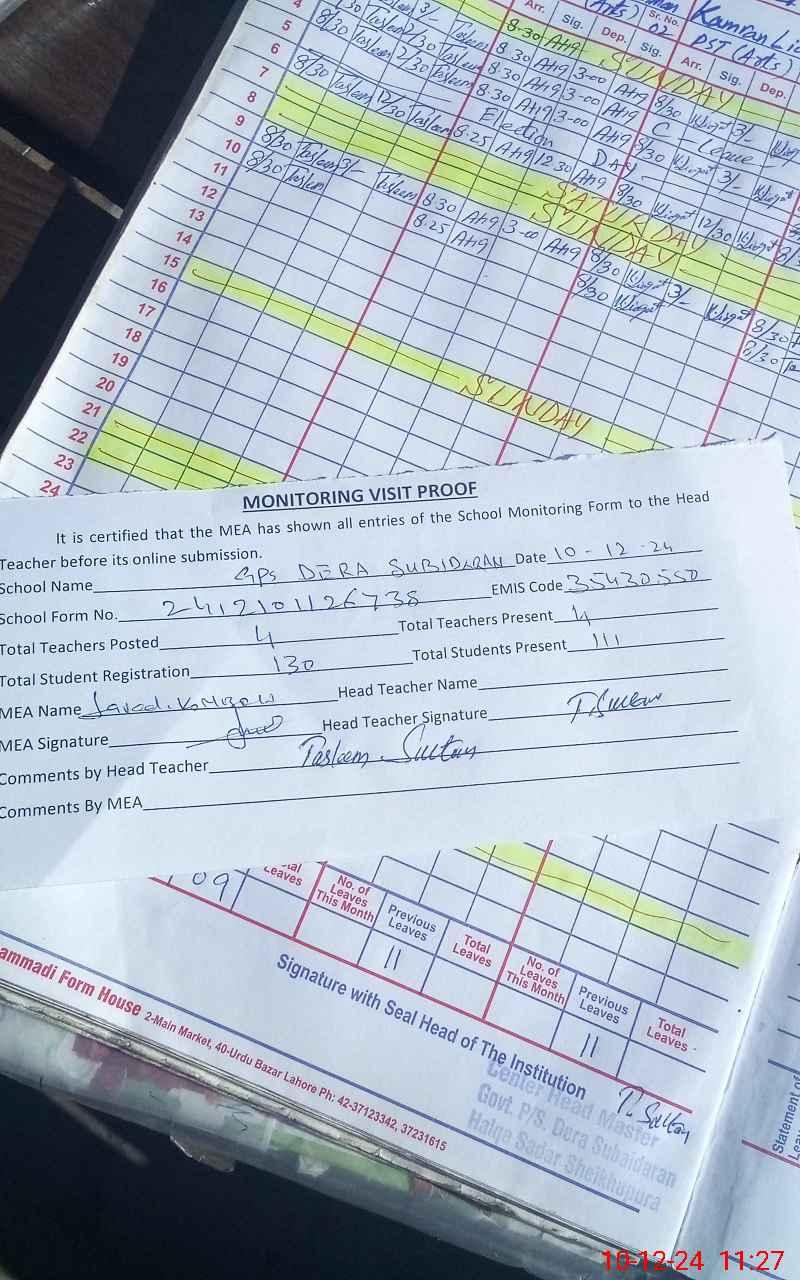 Arr. Sig. Dep. Sig. Sr. No. 02 Kamran
(Arts) PST (Arts)
Arr. Sig. Dep.
4
5 8/30 Tasleem 3/- Tasleem 8.30 Atiq SUNDAY
6 8/30 Tasleem 2/30 Tasleem 8.30 Atiq 3-00 Atiq 8/30 3/-
7 8.30 Atiq 3-00 Atiq C-Leave
8 8/30 Tasleem 12/30 Tasleem 8.30 Atiq 3-00 Atiq 8/30 3/-
Election DAY
9 8.25 Atiq 12.30 Atiq 8/30 12/30
10 SATURDAY
11 SUNDAY
12 8/30 Tasleem 3/- Tasleem 8.30 Atiq 3-00 Atiq 8/30 3/- 8/30
13 8/30 Tasleem 8.25 Atiq 8/30 8/30
14
15
16 SUNDAY
17
18
19
20
21
22
23
24
MONITORING VISIT PROOF
It is certified that the MEA has shown all entries of the School Monitoring Form to the Head
Teacher before its online submission.
School Name GPS DERA SUBIDARAN Date 10-12-24
School Form No. 2412101126738 EMIS Code 35430550
Total Teachers Posted 4 Total Teachers Present 4
Total Student Registration 130 Total Students Present 111
MEA Name Head Teacher Name
MEA Signature Head Teacher Signature T.Sultan
Comments by Head Teacher Tasleem Sultan
Comments By MEA
09 Leaves No. of Leaves This Month Previous Leaves Total Leaves No. of Leaves This Month Previous Leaves Total Leaves
11 11
Signature with Seal Head of The Institution
T. Sultan
Center Head Master
Govt. P/S. Dera Subaidaran
Halqa Sadar Sheikhupura
ammadi Form House 2-Main Market, 40-Urdu Bazar Lahore Ph: 42-37123342, 37231615
Statement of
10-12-24 11:27